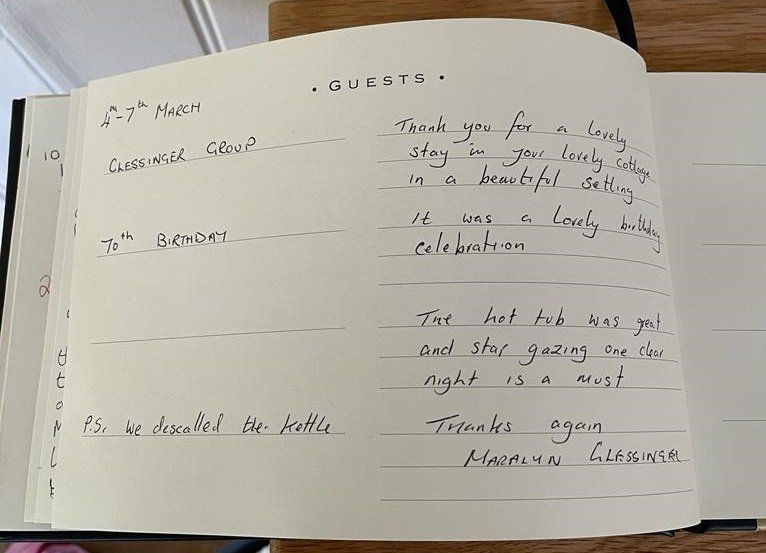 • GUESTS •
4th-7th MARCH
CLESSINGER GROUP
70th BIRTHDAY
P.S. We descalled the kettle
Thank you for a lovely
stay in your lovely cottage
in a beautiful setting
It was a lovely birthday
celebration
The hot tub was great
and star gazing one clear
night is a must
Thanks again
MARALYN CLESSINGER
10
2